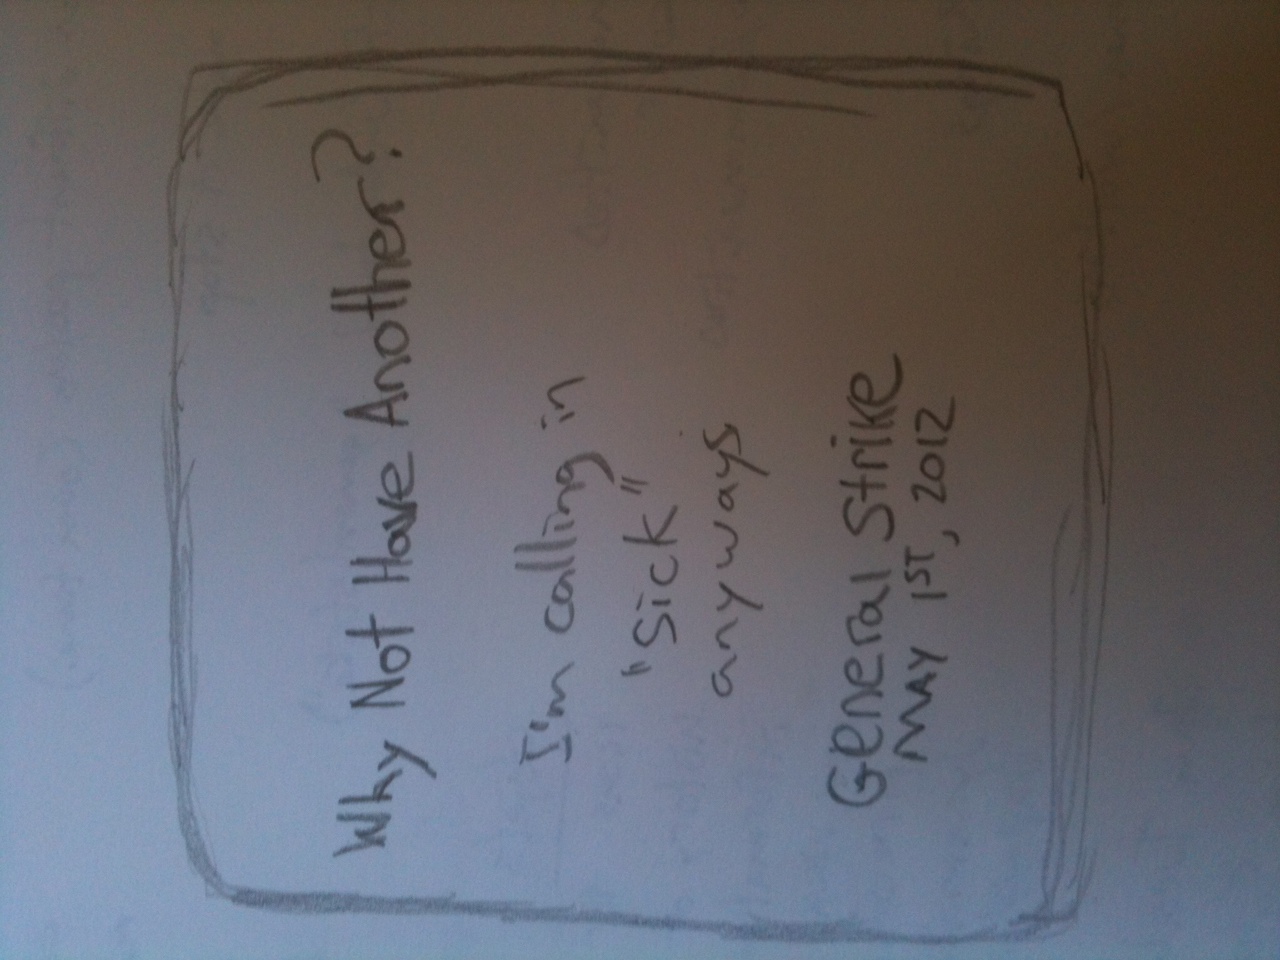 Why Not Have Another?
I'm calling in
"Sick"
anyways
General Strike
MAY 1ST, 2012